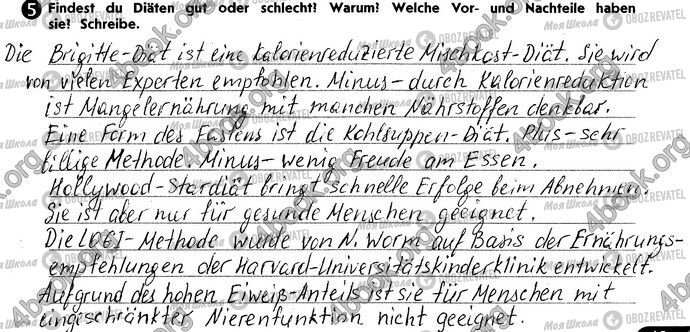 5 Findest du Diäten gut oder schlecht? Warum? Welche Vor- und Nachteile haben
sie? Schreibe.
Die Brigitte-Diät ist eine kalorienreduzierte Mischkost-Diät. Sie wird
von vielen Experten empfohlen. Minus- durch Kalorienreduktion
ist Mangelernährung mit manchen Nährstoffen denkbar.
Eine Form des Fastens ist die Kohlsuppen-Diät. Plus- sehr
billige Methode. Minus- wenig Freude am Essen.
Hollywood-Stardiät bringt schnelle Erfolge beim Abnehmen.
Sie ist aber nur für gesunde Menschen geeignet.
Die LOGI-Methode wurde von N. Worm auf Basis der Ernährungs-
empfehlungen der Harvard-Universitätskinderklinik entwickelt.
Aufgrund des hohen Eiweiß-Anteils ist sie für Menschen mit
eingeschränkter Nierenfunktion nicht geeignet.